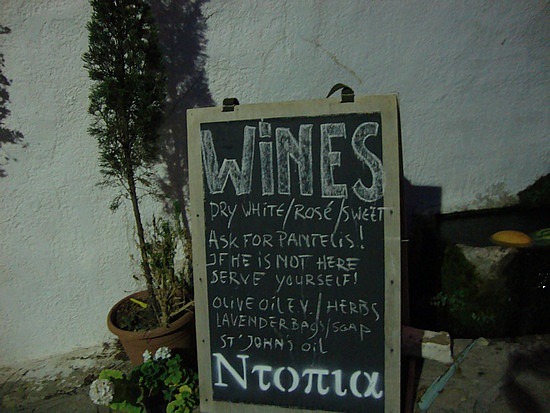 WiNES
DRY WHITE/ROSÉ/SWEET
ASK FOR PANTELIS!
IF HE IS NOT HERE
SERVE YOURSELF!
OLIVE OIL E.V./HERBS
LAVENDER BAGS/SOAP
ST' JOHN'S OIL
Ντοπια